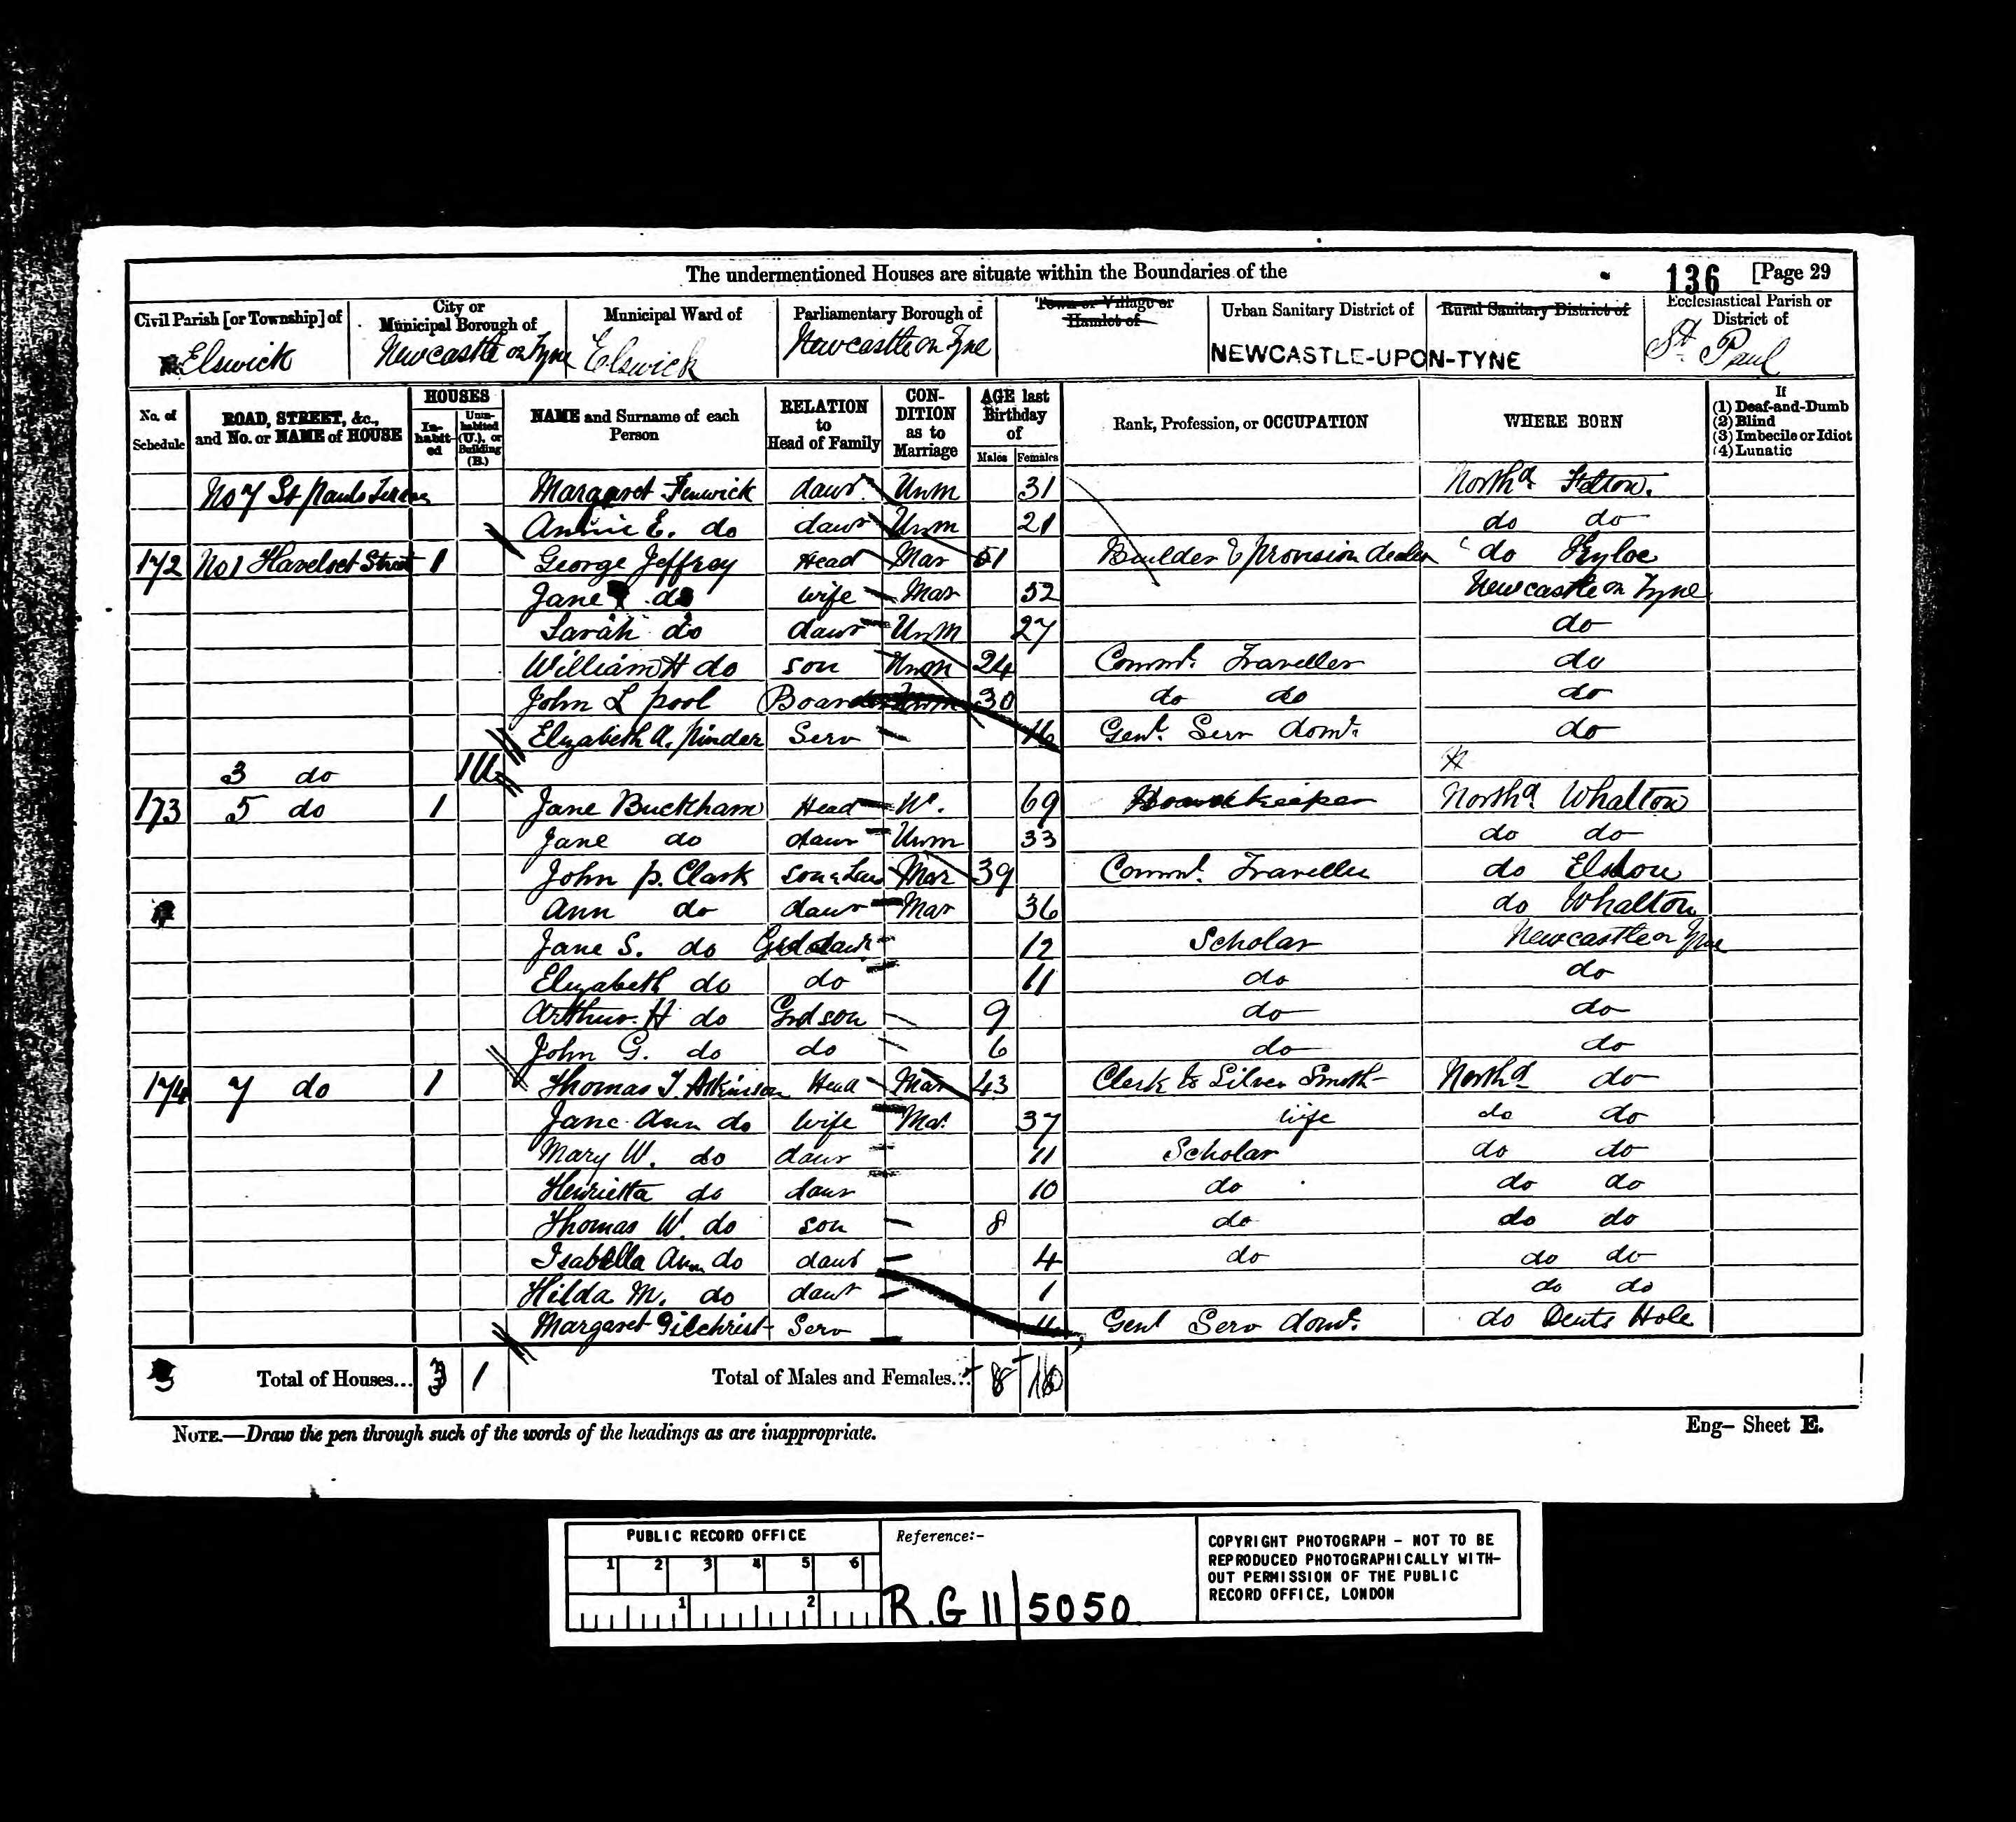 The undermentioned Houses are situate within the Boundaries of the 136 [Page 29
Civil Parish [or Township] of Elswick
City or Municipal Borough of Newcastle on Tyne
Municipal Ward of Elswick
Parliamentary Borough of Newcastle on Tyne
Town or Village or Hamlet of
Urban Sanitary District of NEWCASTLE-UPON-TYNE
Rural Sanitary District of
Ecclesiastical Parish or District of St. Paul
No. of Schedule
ROAD, STREET, &c., and No. or NAME of HOUSE
HOUSES
Inhabited
Uninhabited (U.), or Building (B.)
NAME and Surname of each Person
RELATION to Head of Family
CONDITION as to Marriage
AGE last Birthday of
Males Females
Rank, Profession, or OCCUPATION
WHERE BORN
If
(1) Deaf-and-Dumb
(2) Blind
(3) Imbecile or Idiot
(4) Lunatic
No 7 St Pauls Terrace Margaret Fenwick daur Unm 31 Northd. Felton.
Annie E. do daur Unm 21 do do
172 No 1 Havelock Street 1 George Jeffrey Head Mar 51 Builder & provision dealer do Kyloe
Jane do wife Mar 52 Newcastle on Tyne
Sarah do daur Unm 27 do
William H do son Unm 24 Comml. Traveller do
John L pool Boarder Unm 30 do do do
Elizabeth A. pinder Serv 16 Genl. Serv domc. do
3 do 1U
173 5 do 1 Jane Buckham Head W. 69 keeper Northd Whalton
Jane do daur Unm 33 do do
John p. Clark son n Law Mar 39 Comml. Traveller do
Ann do daur Mar 36 do Whalton
Jane S. do Grd daur. 12 Scholar Newcastle on Tyne
Elizabeth do do 11 do do
Arthur H do Grd son 9 do do
John G. do do 6 do do
174 7 do 1 Thomas T. Atkinson Head Mar 43 Clerk to Silver Smith Northd do
Jane Ann do wife Mar 37 wife do do
Mary W. do daur 11 Scholar do do
Henrietta do daur 10 do do do
Thomas W. do son 8 do do do
Isabella Ann do daur 4 do do do
Hilda M. do daur 1 do do
Margaret Gilchrist Serv Genl Serv domc. do Dents Hole
3 Total of Houses... 3 1 Total of Males and Females... 8 16
NOTE.—Draw the pen through such of the words of the headings as are inappropriate. Eng- Sheet E.
PUBLIC RECORD OFFICE
1 2 3 4 5 6
1 2
Reference:-
R.G 11/5050
COPYRIGHT PHOTOGRAPH - NOT TO BE
REPRODUCED PHOTOGRAPHICALLY WITH-
OUT PERMISSION OF THE PUBLIC
RECORD OFFICE, LONDON